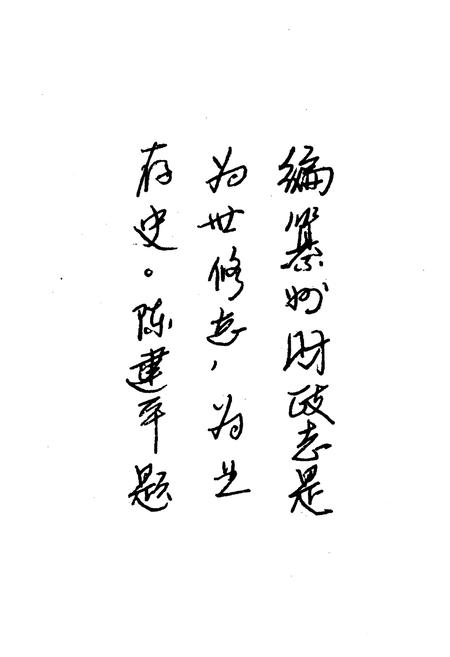 编纂州财政志是
为世修志，为业
存史。陈建平题